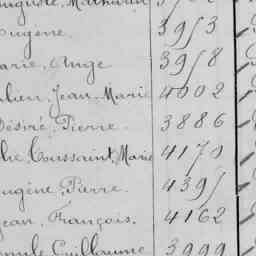 Mathurin
Eugène 3953
Marie, Ange 3958
Julien, Jean, Marie 4002
Désiré, Pierre 3886
Toussaint, Marie 4170
Eugène, Pierre 4395
Jean, François. 4162
Guillaume 3999